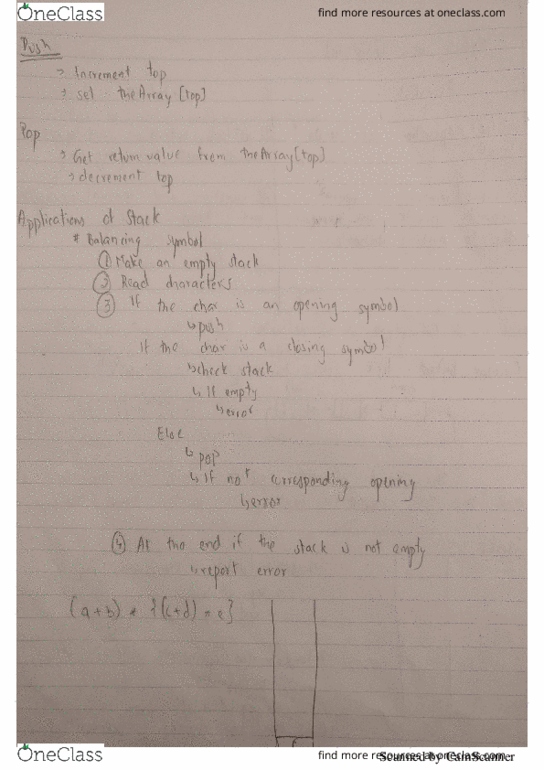 OneClass
find more resources at oneclass.com
Push
> Increment top
> set theArray [top]
Pop
> Get return value from theArray [top]
> decrement top
Applications of Stack
* Balancing symbol
① Make an empty stack
② Read characters
③ If the char is an opening symbol
↳ push
If the char is a closing symbol
↳ check stack
↳ If empty
↳ error
Else
↳ pop
↳ If not corresponding opening
↳ error
④ At the end if the stack is not empty
↳ report error
(a+b) * {(c+d) = e}
OneClass
find more resources at oneclass.com
Scanned by CamScanner